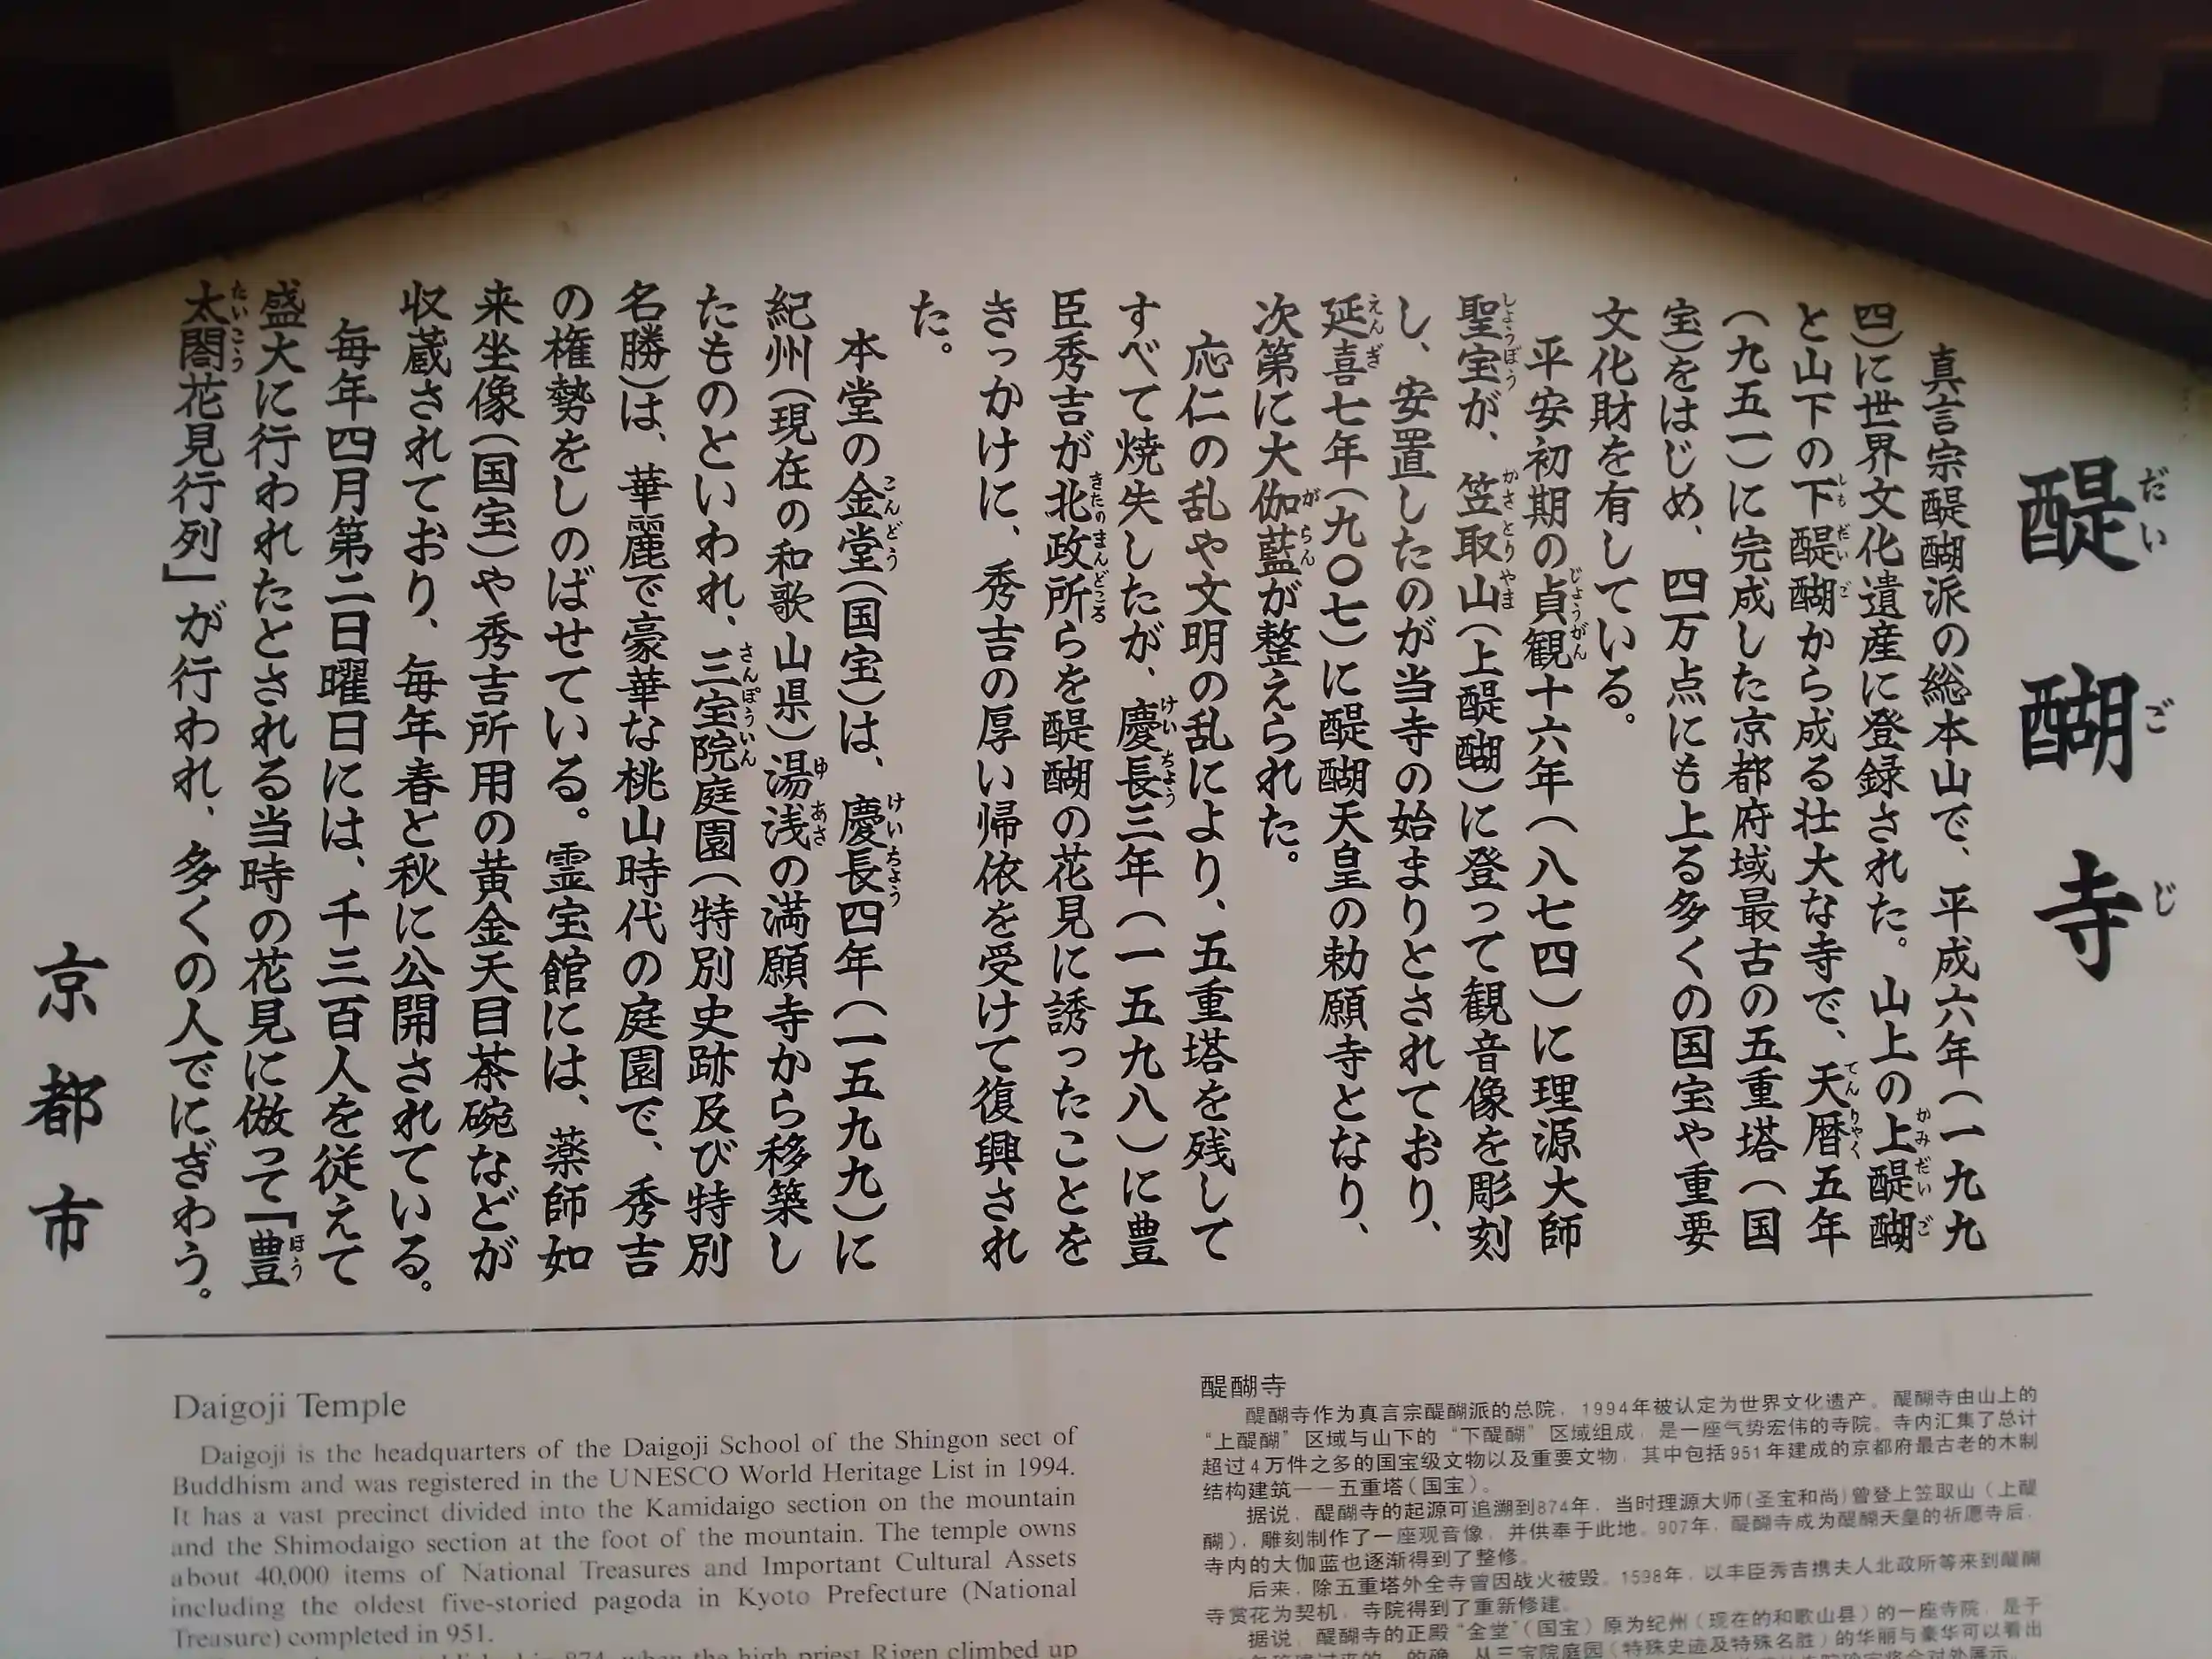 醍醐寺
だいごじ
真言宗醍醐派の総本山で、平成六年(一九九
四)に世界文化遺産に登録された。山上の上醍醐
かみだいご
と山下の下醍醐から成る壮大な寺で、天暦五年
しもだいご
てんりやく
(九五一)に完成した京都府域最古の五重塔(国
宝)をはじめ、四万点にも上る多くの国宝や重要
文化財を有している。
平安初期の貞観十六年(八七四)に理源大師
じょうがん
聖宝が、笠取山(上醍醐)に登って観音像を彫刻
しょうぼう
かさとりやま
し、安置したのが当寺の始まりとされており、
延喜七年(九〇七)に醍醐天皇の勅願寺となり、
えんぎ
次第に大伽藍が整えられた。
がらん
応仁の乱や文明の乱により、五重塔を残して
すべて焼失したが、慶長三年(一五九八)に豊
けいちょう
臣秀吉が北政所らを醍醐の花見に誘ったことを
きたのまんどころ
きっかけに、秀吉の厚い帰依を受けて復興され
た。
本堂の金堂(国宝)は、慶長四年(一五九九)に
こんどう
けいちょう
紀州(現在の和歌山県)湯浅の満願寺から移築し
ゆあさ
たものといわれ、三宝院庭園(特別史跡及び特別
さんぽういん
名勝)は、華麗で豪華な桃山時代の庭園で、秀吉
の権勢をしのばせている。霊宝館には、薬師如
来坐像(国宝)や秀吉所用の黄金天目茶碗などが
収蔵されており、毎年春と秋に公開されている。
毎年四月第二日曜日には、千三百人を従えて
盛大に行われたとされる当時の花見に倣って「豊
ほう
太閤花見行列」が行われ、多くの人でにぎわう。
たいこう
京都市
Daigoji Temple
Daigoji is the headquarters of the Daigoji School of the Shingon sect of
Buddhism and was registered in the UNESCO World Heritage List in 1994.
It has a vast precinct divided into the Kamidaigo section on the mountain
and the Shimodaigo section at the foot of the mountain. The temple owns
about 40,000 items of National Treasures and Important Cultural Assets
including the oldest five-storied pagoda in Kyoto Prefecture (National
Treasure) completed in 951.
in 874, when the high priest Rigen climbed up
醍醐寺
醍醐寺作为真言宗醍醐派的总院，1994年被认定为世界文化遗产。醍醐寺由山上的
“上醍醐”区域与山下的“下醍醐”区域组成，是一座气势宏伟的寺院。寺内汇集了总计
超过4万件之多的国宝级文物以及重要文物，其中包括951年建成的京都府最古老的木制
结构建筑——五重塔（国宝）。
据说，醍醐寺的起源可追溯到874年，当时理源大师(圣宝和尚)曾登上笠取山（上醍
醐），雕刻制作了一座观音像，并供奉于此地。907年，醍醐寺成为醍醐天皇的祈愿寺后，
寺内的大伽蓝也逐渐得到了整修。
后来，除五重塔外全寺曾因战火被毁。1598年，以丰臣秀吉携夫人北政所等来到醍醐
寺赏花为契机，寺院得到了重新修建。
据说，醍醐寺的正殿“金堂”（国宝）原为纪州（现在的和歌山县）的一座寺院，是于
的确，从三宝院庭园（特殊史迹及特殊名胜）的华丽与豪华可以看出